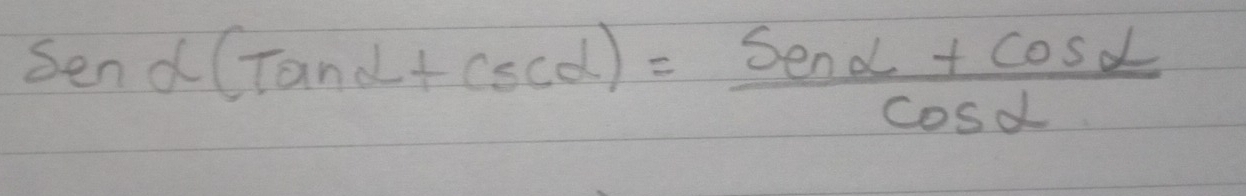 Sen α (Tan α + Csc α) = \frac{Sen α + Cos α}{Cos α}